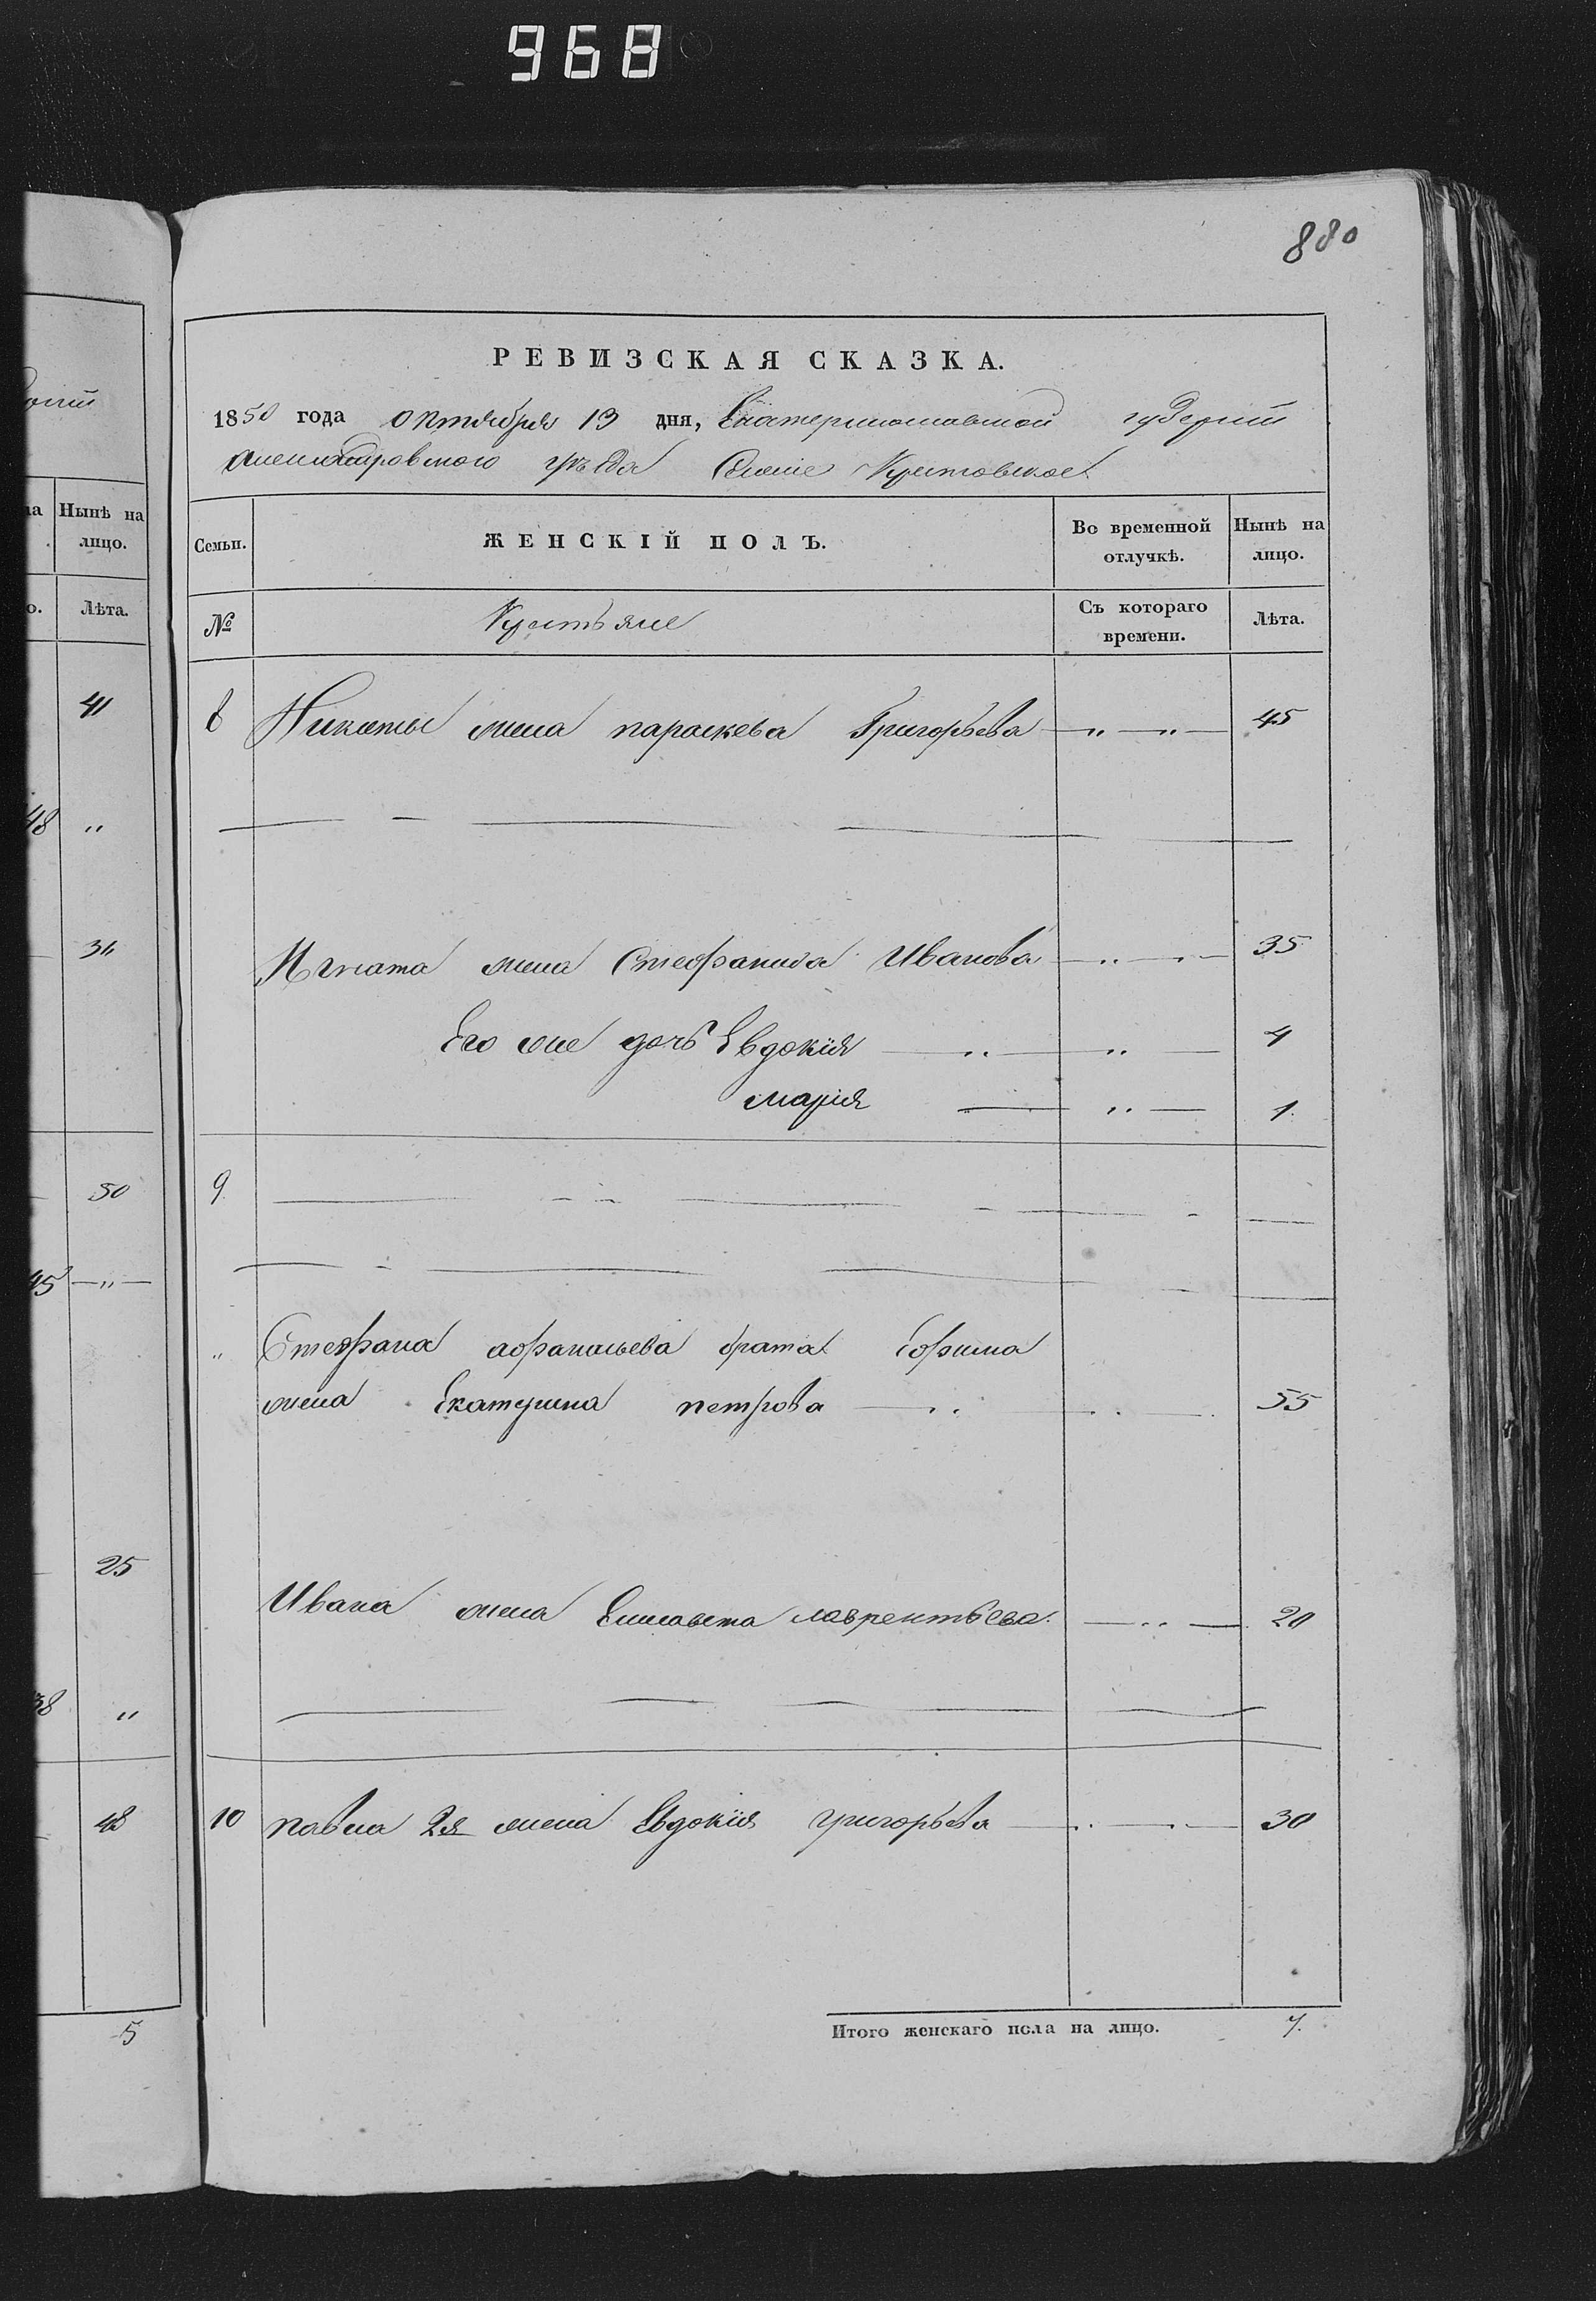 968
880
РЕВИЗСКАЯ СКАЗКА.
1850 года октября 13 дня, Екатеринославской губерніи
Александровского уѣзда Селеніе
Нынѣ на лицо.
Лѣта.
Семьи.
ЖЕНСКІЙ ПОЛЪ.
Во временной отлучкѣ.
Нынѣ на лицо.
№
Крестьяне
Съ котораго времени.
Лѣта.
41
8 Никиты жена параскева Григорьева — „ — „ — 45
48 „
31
Игната жена Стефанида Иванова — „ — „ — 35
Его же дочь Евдокія — „ — „ — 4
марія — „ — 1
50
9
45 — „ —
„ Стефана афанасьева брата Ефима
жена Екатерина петрова — „ „ — 55
25
Ивана жена Елисавета лаврентьева — „ — 20
38 „
48
10 павла 2я жена Евдокія григорьева — „ — „ — 30
5
Итого женскаго пола на лицо. 7.